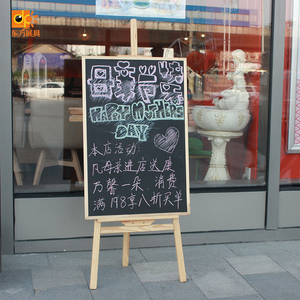 东方展具
母亲节快乐
HAPPY MOTHER'S
DAY
本店活动
凡母亲进店送康
乃馨一朵 消费
满198享八折买单